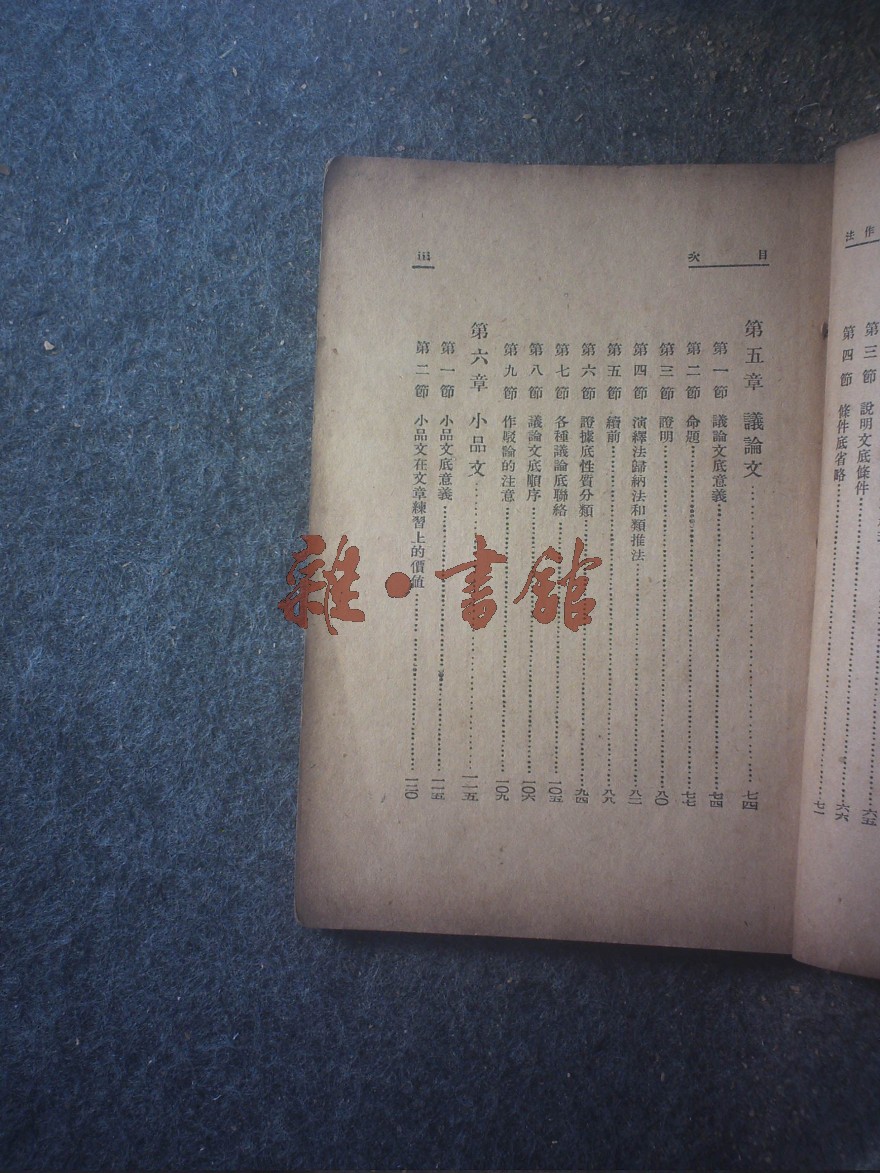 作法
第三節 說明文底條件……六五
第四節 條件底省略……六六
七一
目次
iii
第五章 議論文……七四
第一節 議論文底意義……七四
第二節 命題……七七
第三節 證明……八〇
第四節 演繹法歸納法和類推法……八二
第五節 續前……八八
第六節 證據底性質分類……九四
第七節 各種議論底聯絡……一〇五
第八節 議論文底順序……一〇六
第九節 作駁論的注意……一〇九
第六章 小品文……一一五
第一節 小品文底意義……一一五
第二節 小品文在文章練習上的價値……一二〇
雜·書館